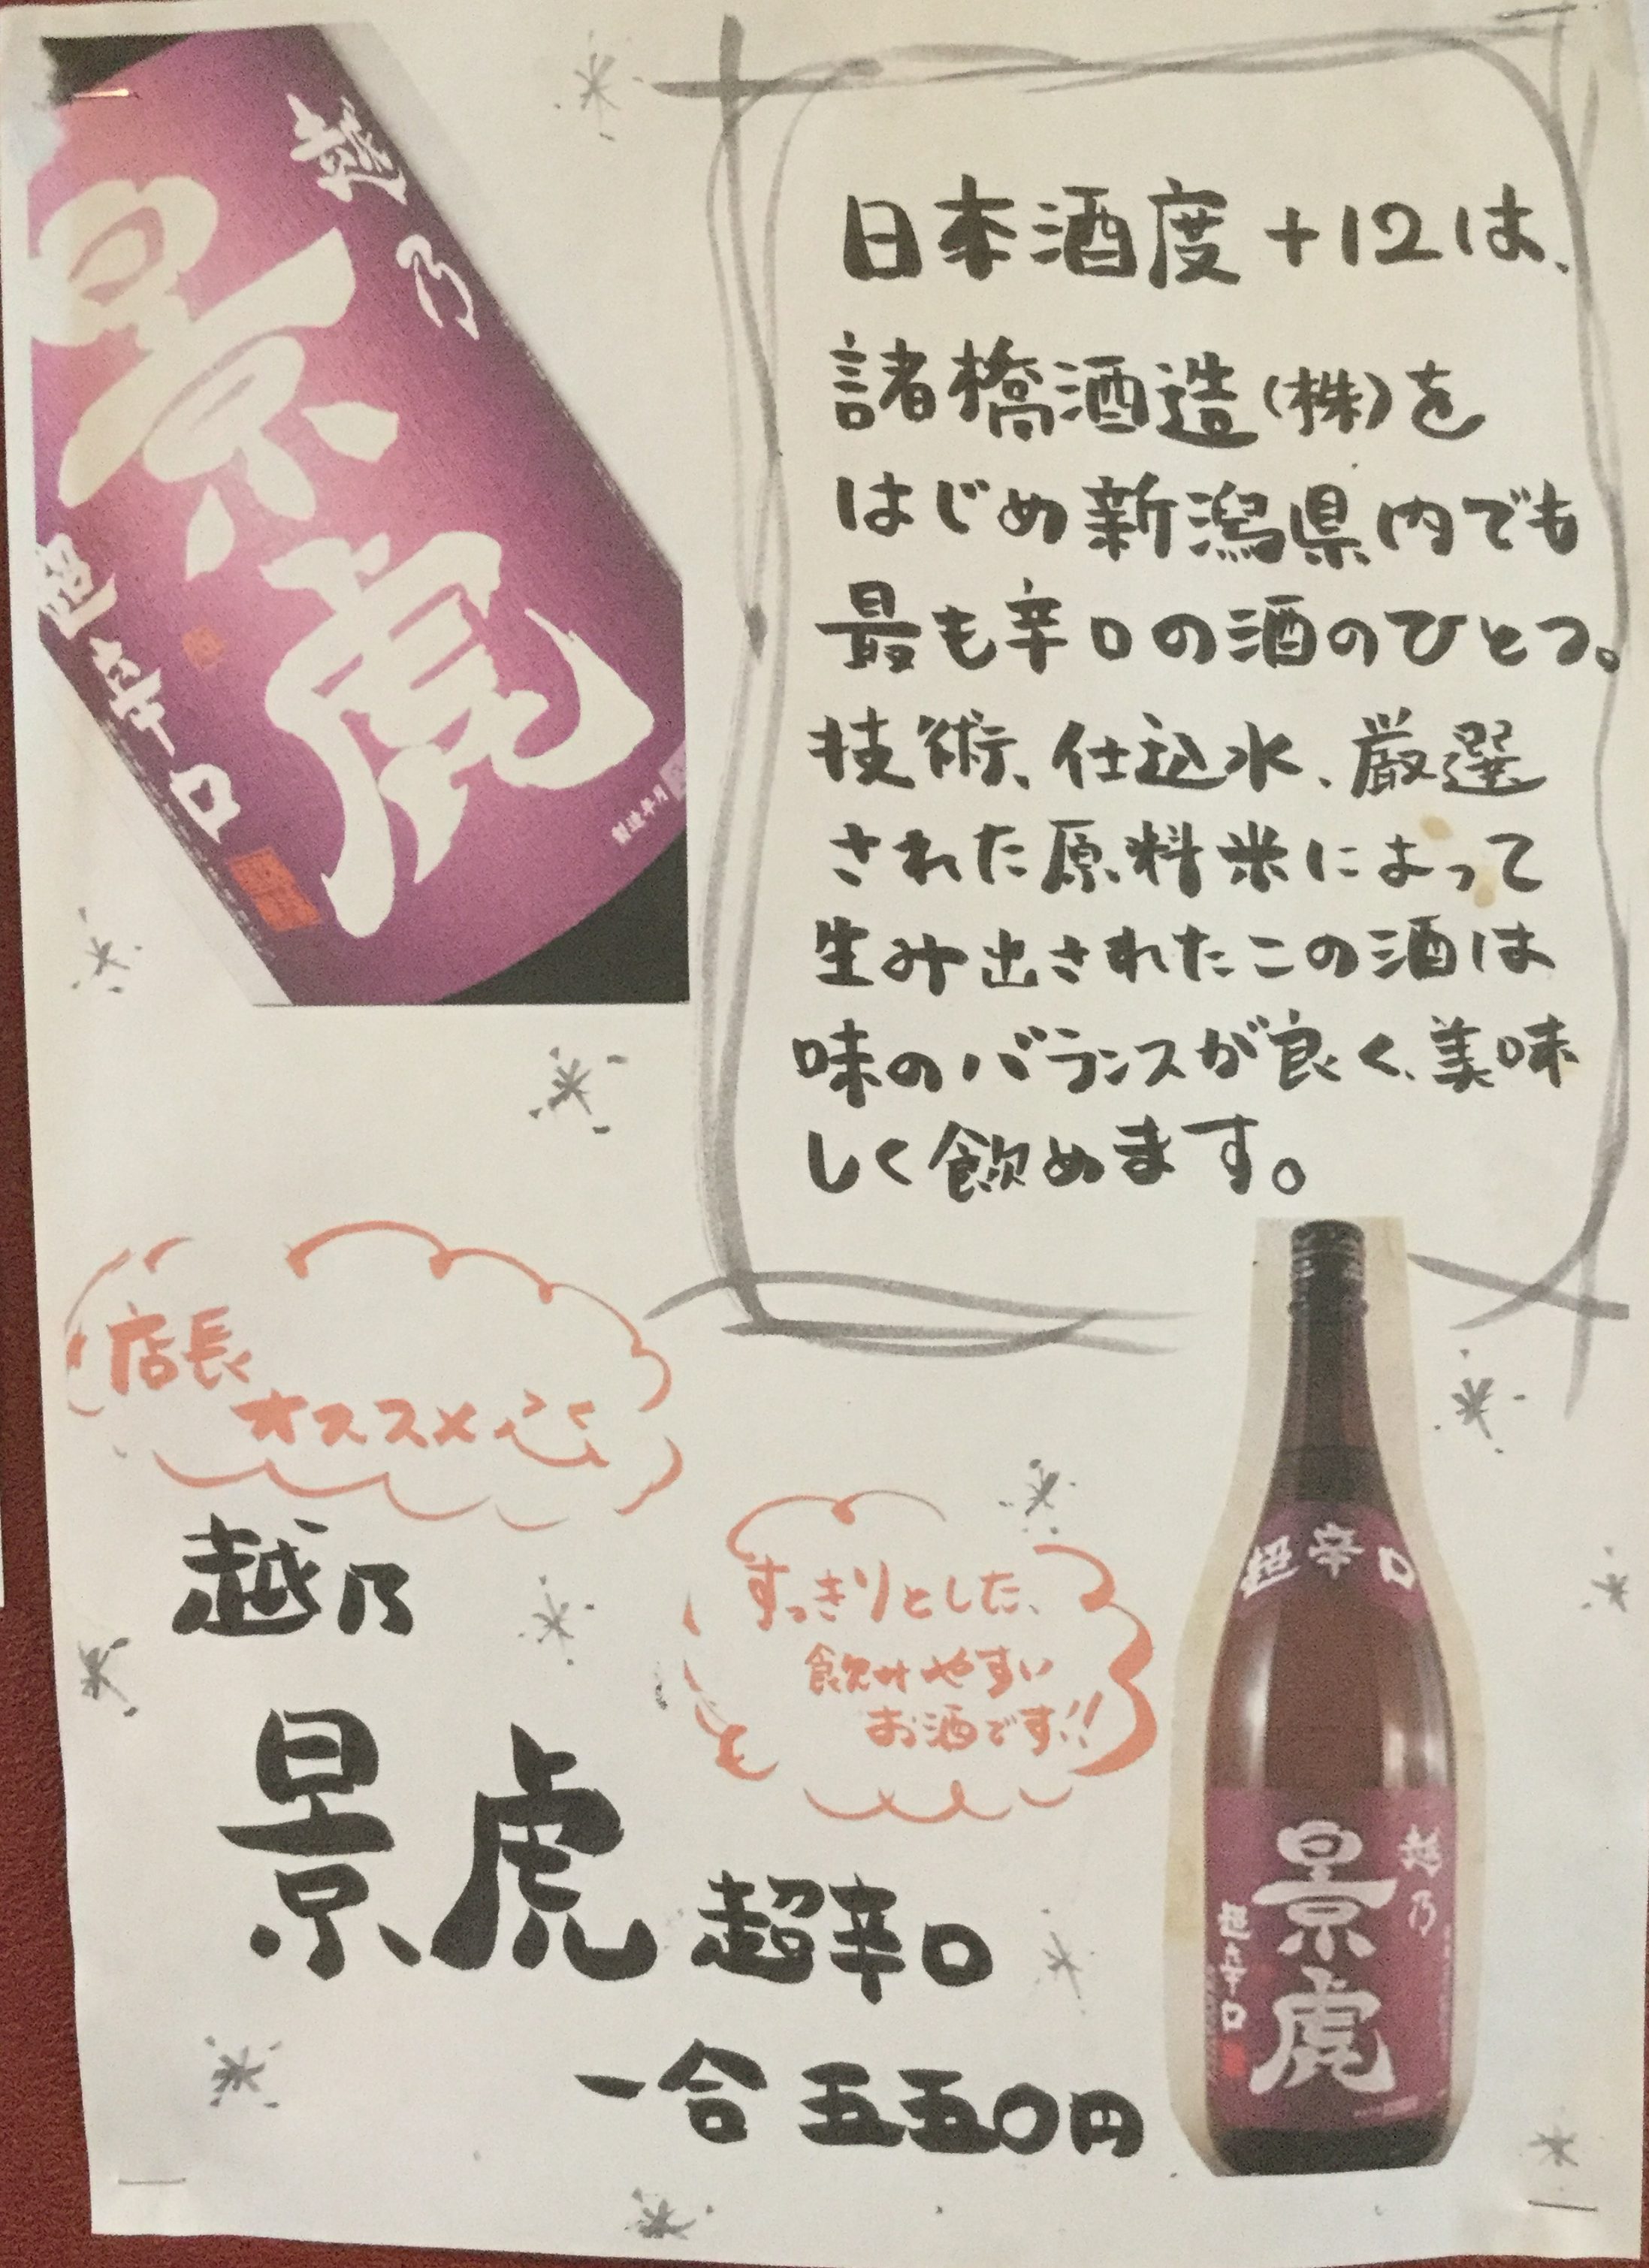 越乃
景虎
超辛口
製造年月
日本酒度+12は、
諸橋酒造(株)を
はじめ新潟県内でも
最も辛口の酒のひとつ。
技術、仕込水、厳選
された原料米によって
生み出されたこの酒は
味のバランスが良く、美味
しく飲めます。
店長
オススメ
すっきりとした、
飲みやすい
お酒です!!
越乃
景虎 超辛口
一合 五五〇円
超辛口
越乃
景虎
超辛口